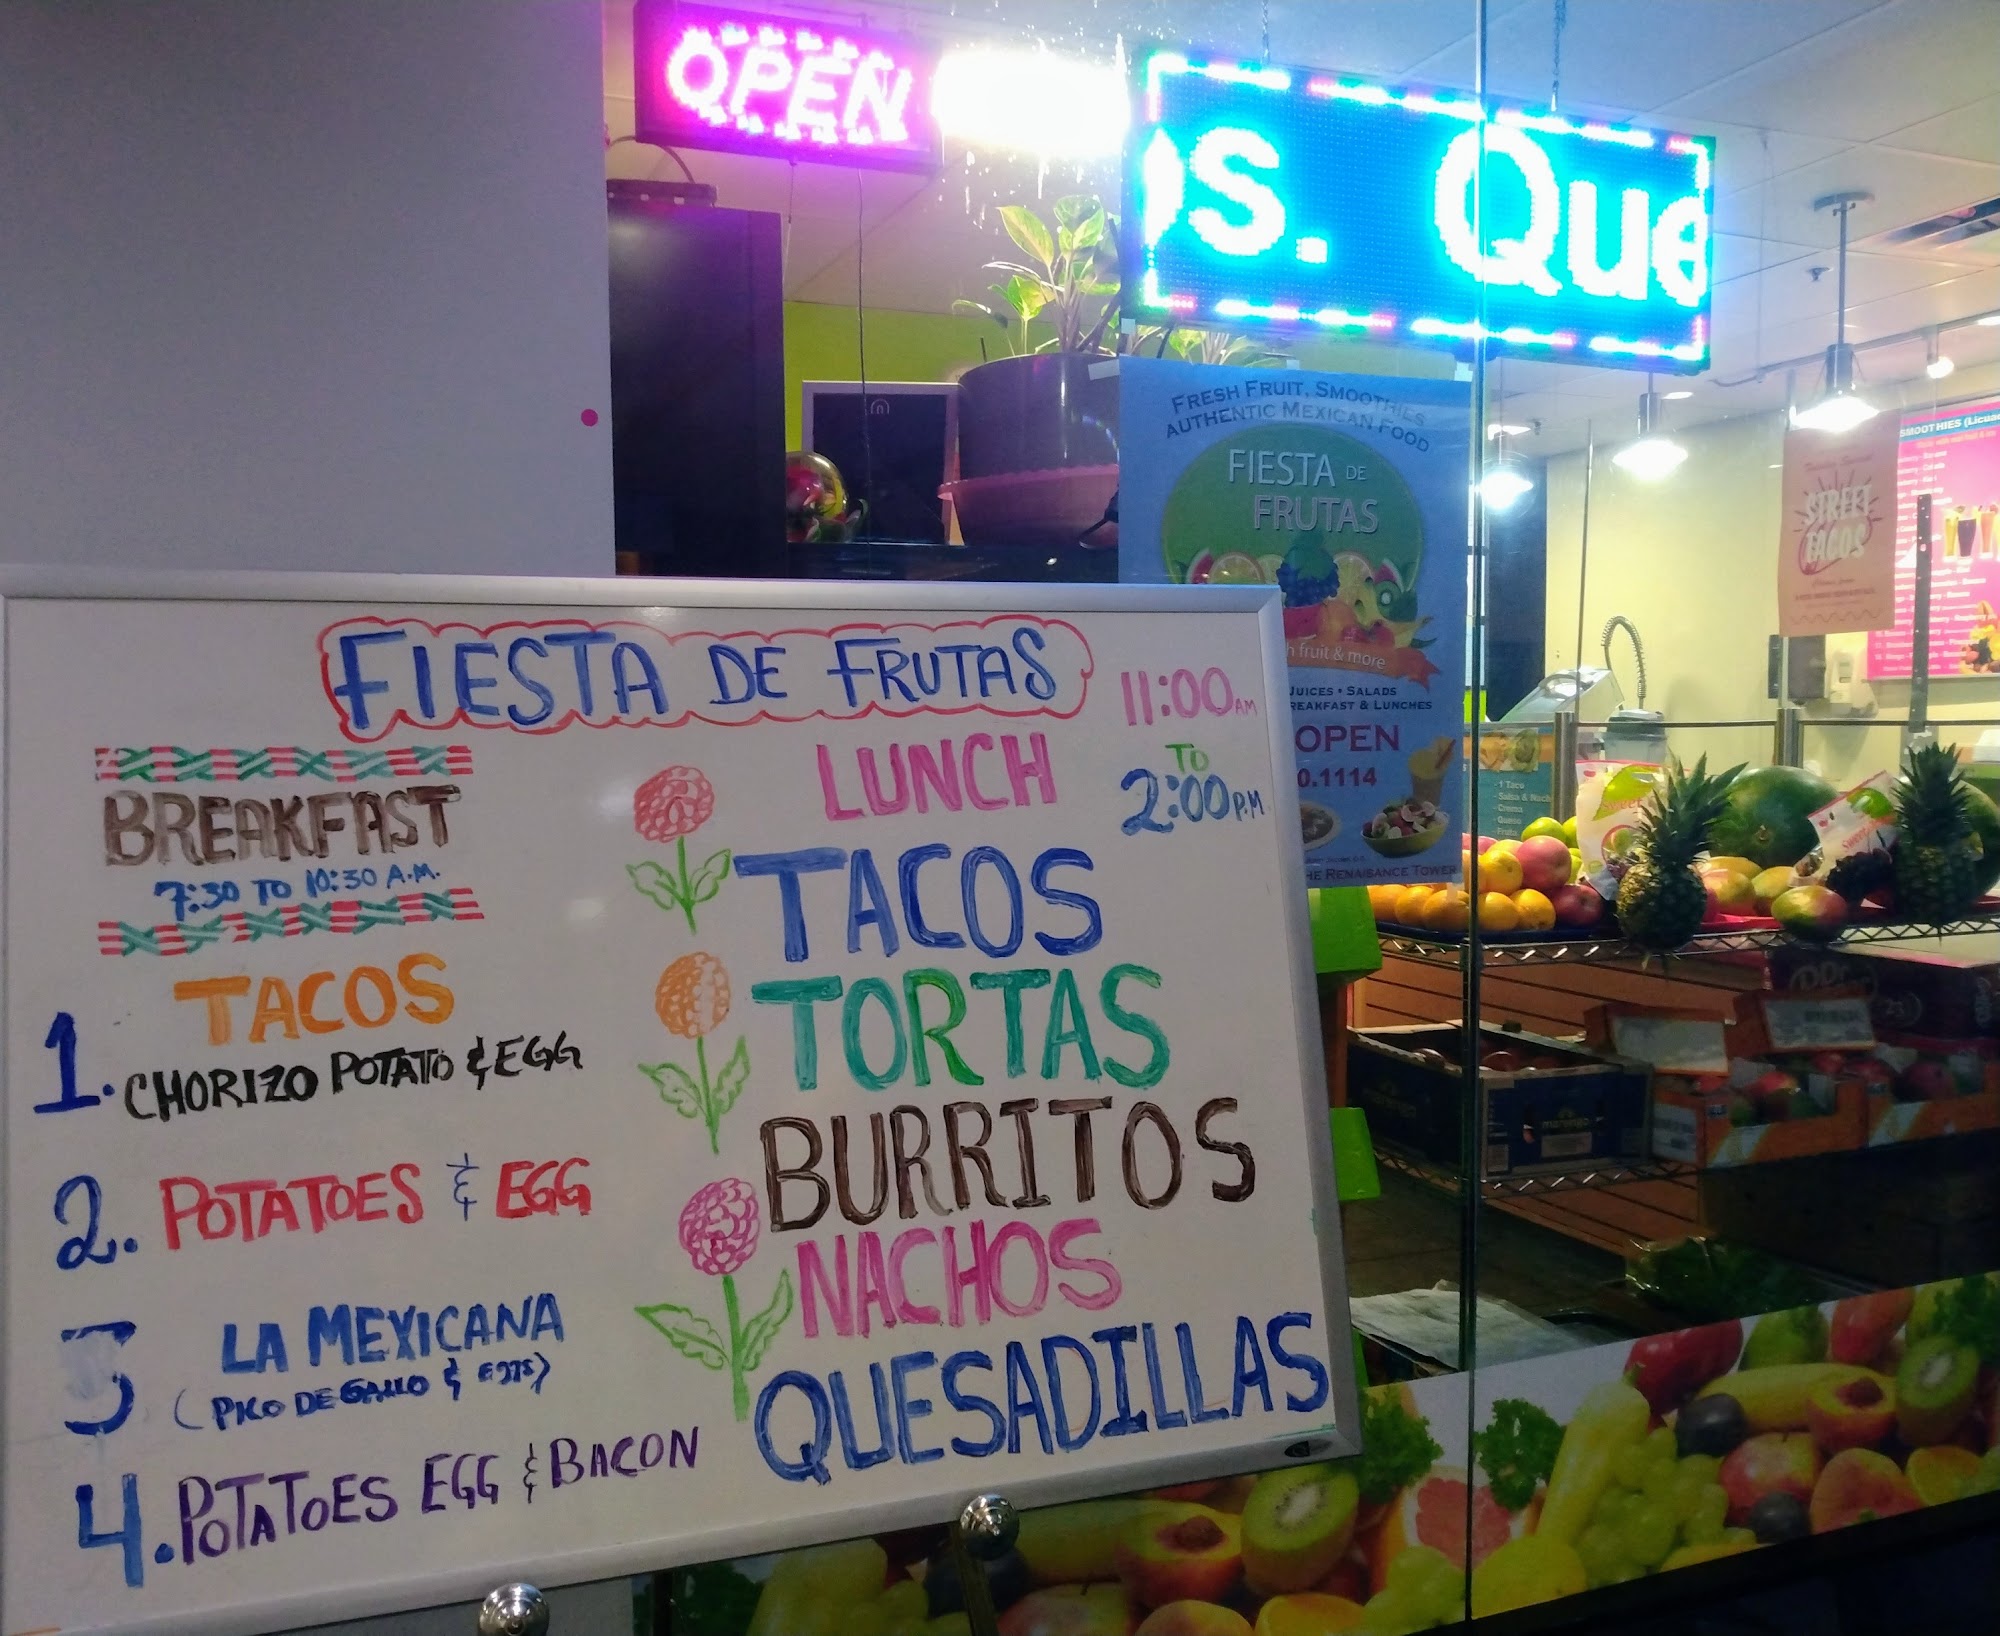 OPEN
s. Que
FRESH FRUIT, SMOOTHIES
AUTHENTIC MEXICAN FOOD
FIESTA DE
FRUTAS
h fruit & more
JUICES • SALADS
REAKFAST & LUNCHES
OPEN
0.1114
HE RENAISANCE TOWER
STREET
TACOS
SMOOTHIES (Licua
1 Taco
Crema
Queso
Fruta
FIESTA DE FRUTAS
BREAKFAST
7:30 TO 10:30 A.M.
TACOS
1. CHORIZO POTATO & EGG
2. POTATOES & EGG
3 LA MEXICANA
(PICO DE GALLO & EGGS)
4. POTATOES EGG & BACON
11:00 AM
TO
2:00 P.M
LUNCH
TACOS
TORTAS
BURRITOS
NACHOS
QUESADILLAS